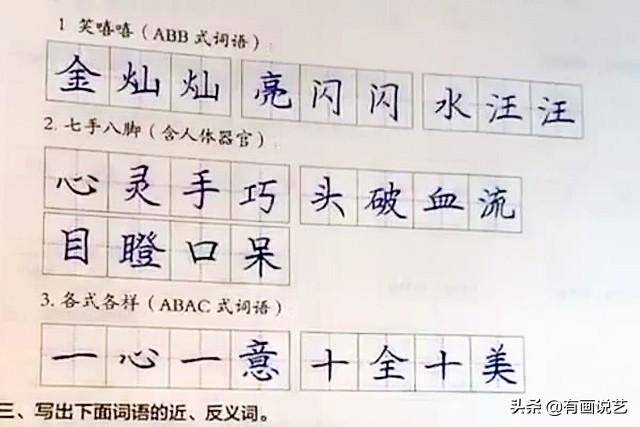 1 笑嘻嘻（ABB 式词语）
金灿灿 亮闪闪 水汪汪
2. 七手八脚（含人体器官）
心灵手巧 头破血流
目瞪口呆
3. 各式各样（ABAC 式词语）
一心一意 十全十美
三、写出下面词语的近、反义词。
头条 @有画说艺